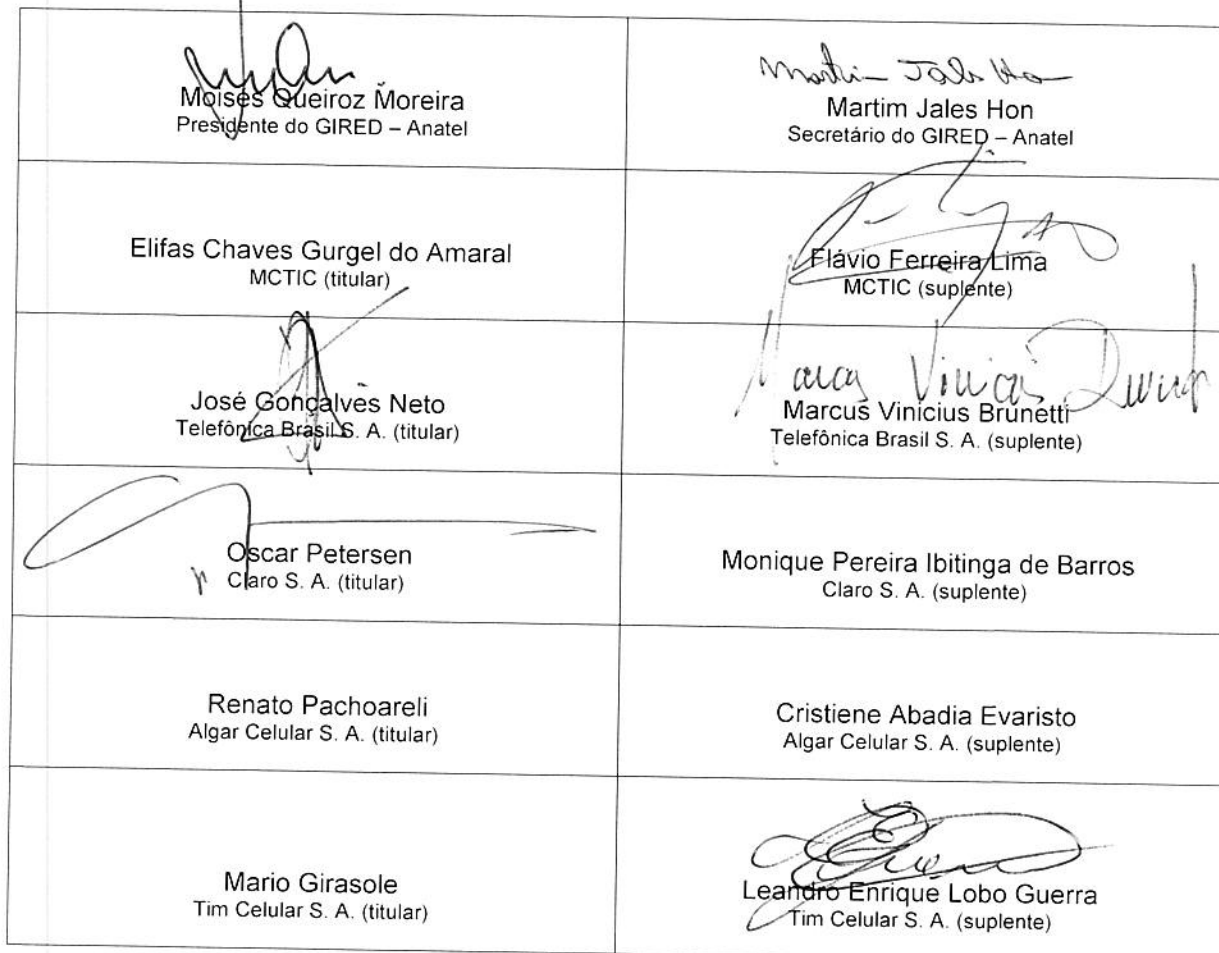 Moisés Queiroz Moreira
Presidente do GIRED – Anatel
Martim Jales Hon
Martim Jales Hon
Secretário do GIRED – Anatel
Elifas Chaves Gurgel do Amaral
MCTIC (titular)
Flávio Ferreira Lima
MCTIC (suplente)
José Gonçalves Neto
Telefônica Brasil S. A. (titular)
Marcus Vinicius Brunetti
Telefônica Brasil S. A. (suplente)
Oscar Petersen
Claro S. A. (titular)
Monique Pereira Ibitinga de Barros
Claro S. A. (suplente)
Renato Pachoareli
Algar Celular S. A. (titular)
Cristiene Abadia Evaristo
Algar Celular S. A. (suplente)
Mario Girasole
Tim Celular S. A. (titular)
Leandro Enrique Lobo Guerra
Tim Celular S. A. (suplente)